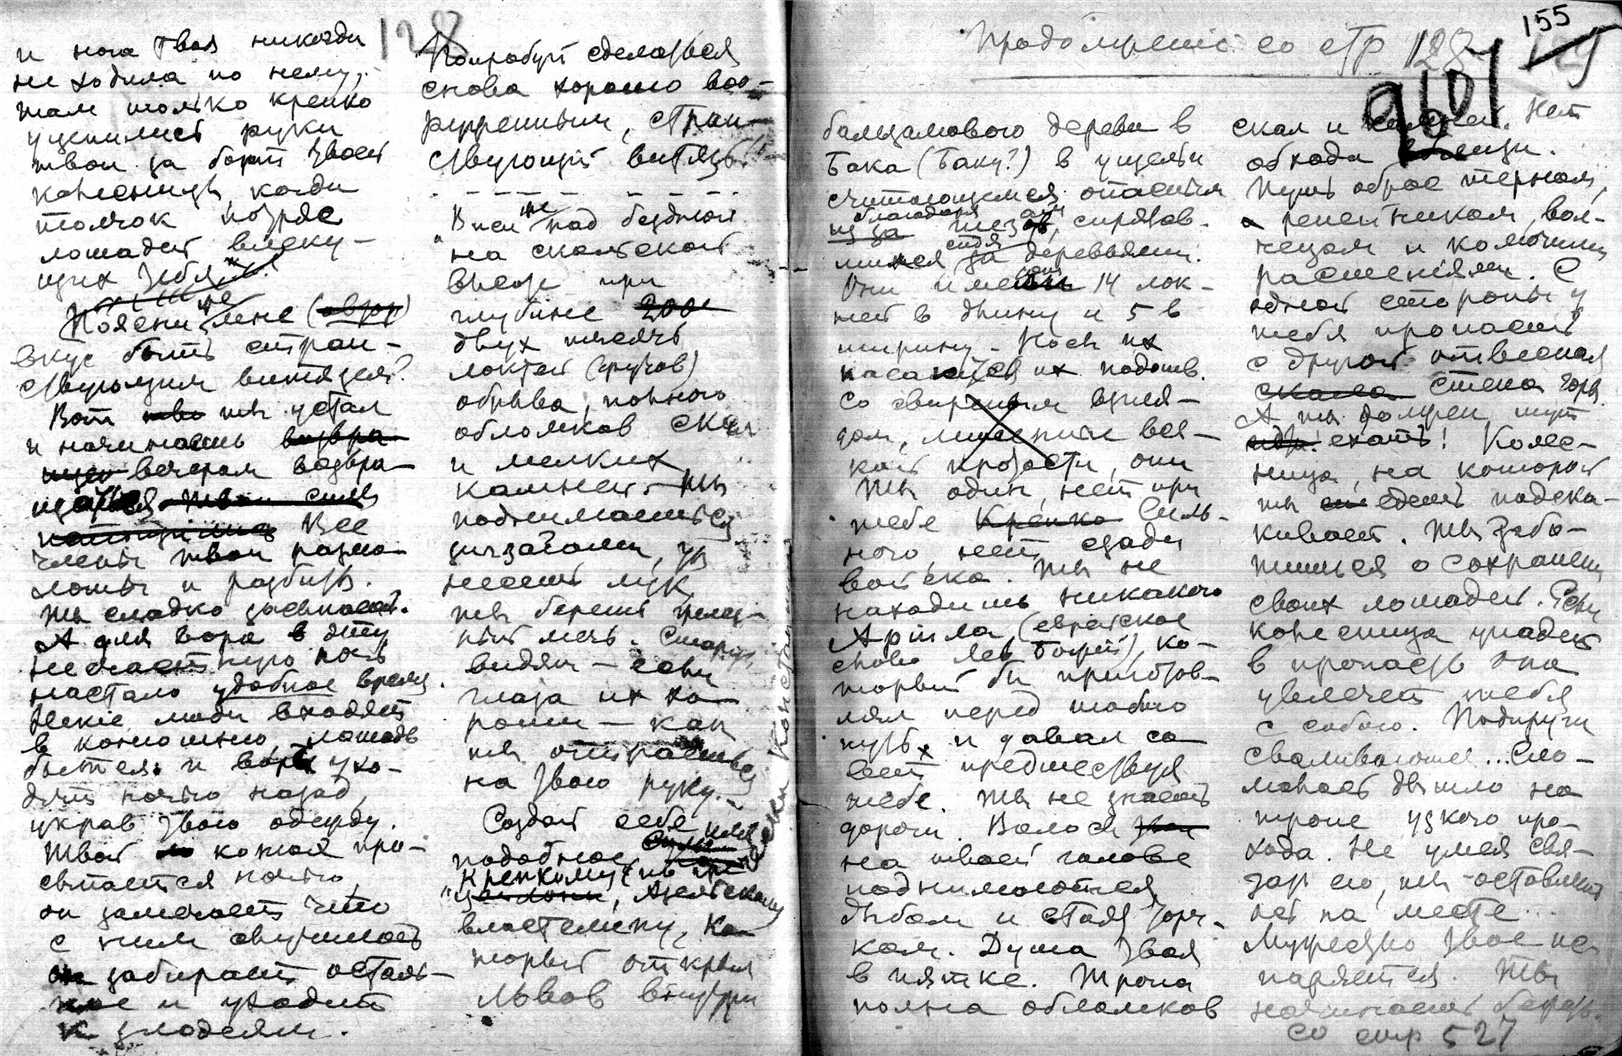 128
и нога твоя никогда
не ходила по нему,
там только крепко
уцепились руки
твои за борт твоей
колесницы, когда
толчок потряс
лошадей влеку-
щих тебя.
Поясни же мне (
вкус быть стран-
ствующим витязем?
Вот ты устал
и начинаешь
вечером возвра-
щаться. Все
члены твои разло-
маны и разбиты.
Ты сладко засыпаешь.
А для вора в эту
несчастную ночь
настало удобное время.
Некие люди входят
в конюшню, лошадь
бьется и воры ухо-
дят ночью назад,
украв твою одежду.
Твой конюх про-
сыпается ночью,
он замечает что
с ним случилось
забирает осталь-
ное и уходит
к злодеям.
Попробуй сделаться
снова хорошо воо-
руженным, стран-
ствующий витязь!
"Вися же над бездной
на скалистой
высоте при
глубине
двух тысячь
локтей (футов)
обрыва, полного
обломков скал
и мелких
камней. Ты
поднимаешься
зигзагами, ты
несешь лук,
ты берешь желез-
ный меч.
видят — если
глаза их хо-
роши — как
ты
на твою руку.
Создай себе имя
подобное
крепкому
властелину, ко-
торый открыл
львов внутри
Продолжение со стр 128
155
бальзамового дерева в
Бака (Баку?) в ущельи
считающемся опасным
из за
деревьями.
Они имеют 14 лок-
тей в длину и 5 в
ширину. Носы их
касаются их подошв.
Со свирепым взгля-
дом, лишенные вся-
кой кротости, они
Ты один, нет при
тебе силь-
ного, нет сзади
войска. Ты не
находишь никакого
Ариэла, (еврейское
слово лев Божий), ко-
торый бы приготов-
лял перед тобою
путь и давал со
вет предшествуя
тебе. Ты не знаешь
дороги. Волосы
на твоей голове
поднимаются
дыбом и стоя торч-
ком. Душа твоя
в пятке. Тропа
полна обломков
скал и камней. Нет
обхода
Путь оброс терном,
репейником, вол-
чецом и колючими
растениями. С
одной стороны у
тебя пропасть
с другой отвесная
стена горы.
А ты должен тут
ехать! Колес-
ница, на которой
ты едешь подска-
кивает. Ты забо-
тишься о сохранении
своих лошадей. Если
колесница упадет
в пропасть она
увлечет тебя
с собою. Подпруги
сваливающие... Сло-
маешь дышло на
тропе узкого про-
хода. Не умея свя-
зать его, ты оставляешь
его на месте...
Мужество твое ис-
паряется. Ты
начинаешь бежать.
со стр 527